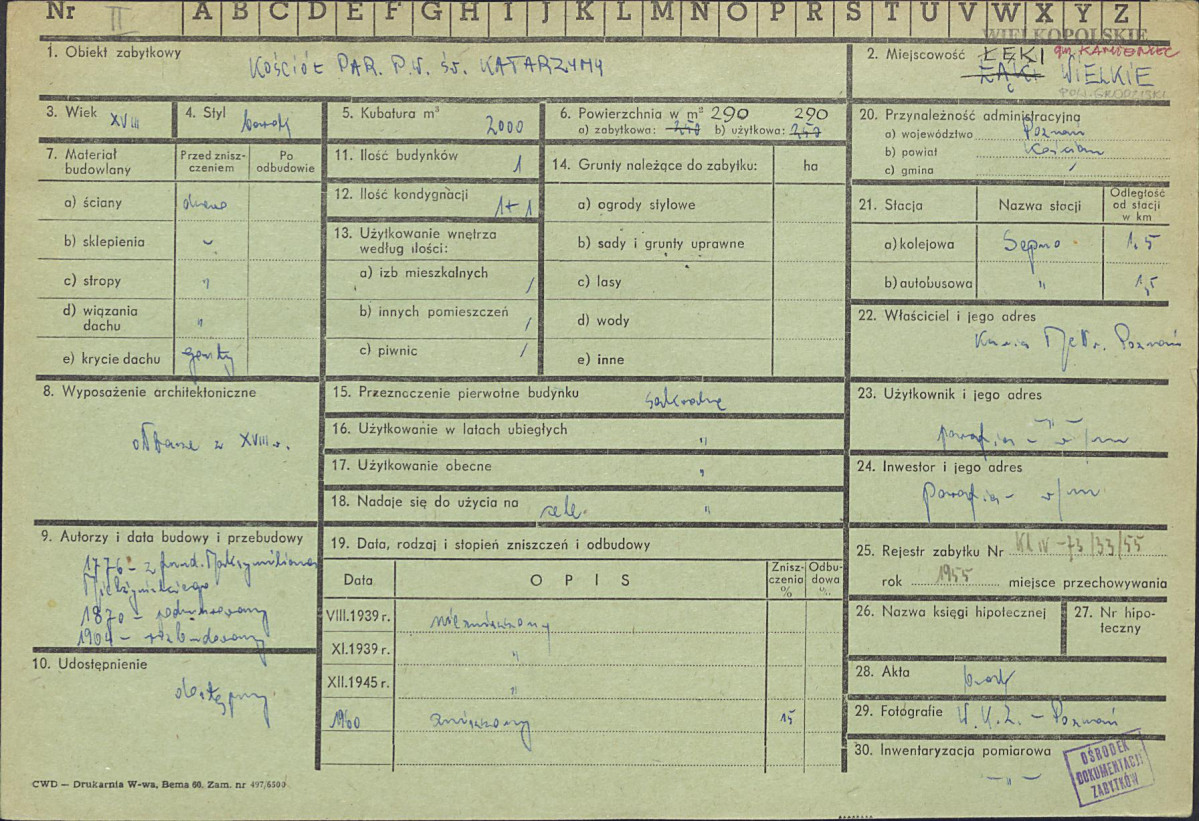 Nr II A B C D E F G H I J K L M N O P R S T U V W X Y Z
WIELKOPOLSKIE
1. Obiekt zabytkowy
KOŚCIÓŁ PAR. P.W. ŚW. KATARZYNY
2. Miejscowość ŁĘKI gm. KAMIENIEC
ŁĄKI WIELKIE
POW. GRODZISKI
3. Wiek XVIII
4. Styl barok
5. Kubatura m³ 2000
6. Powierzchnia w m² 290 290
a) zabytkowa: 250 b) użytkowa: 250
7. Materiał budowlany
Przed zniszczeniem
Po odbudowie
a) ściany drewno
b) sklepienia "
c) stropy "
d) wiązania dachu "
e) krycie dachu gonty
8. Wyposażenie architektoniczne
ołtarze z XVIII w.
9. Autorzy i data budowy i przebudowy
1776 - z fund. Maksymiliana
Mielżyńskiego
1870 - odnowiony
1904 - rozbudowany
10. Udostępnienie
dostępny
11. Ilość budynków 1
12. Ilość kondygnacji 1+1
13. Użytkowanie wnętrza według ilości:
a) izb mieszkalnych /
b) innych pomieszczeń /
c) piwnic /
14. Grunty należące do zabytku: ha
a) ogrody stylowe
b) sady i grunty uprawne
c) lasy
d) wody
e) inne
15. Przeznaczenie pierwotne budynku sakralne
16. Użytkowanie w latach ubiegłych "
17. Użytkowanie obecne "
18. Nadaje się do użycia na cele "
19. Data, rodzaj i stopień zniszczeń i odbudowy
Data OPIS Zniszczenia % Odbudowa %
VIII.1939 r. niezniszczony
XI.1939 r. "
XII.1945 r. "
1960 zniszczony 15
20. Przynależność administracyjną
a) województwo Poznań
b) powiat Kościan
c) gmina /
21. Stacja Nazwa stacji Odległość od stacji w km
a) kolejowa Sepno 1,5
b) autobusowa " 1,5
22. Właściciel i jego adres
Kuria Metr. Poznań
23. Użytkownik i jego adres
-"-
parafia - w/m
24. Inwestor i jego adres
parafia - w/m
25. Rejestr zabytku Nr KL IV-73/33/55
rok 1955 miejsce przechowywania
26. Nazwa księgi hipotecznej
27. Nr hipoteczny
28. Akta brak
29. Fotografie W.K.Z. - Poznań
30. Inwentaryzacja pomiarowa
-"-
OŚRODEK
DOKUMENTACJI
ZABYTKÓW
CWD — Drukarnia W-wa, Bema 60. Zam. nr 497/6500